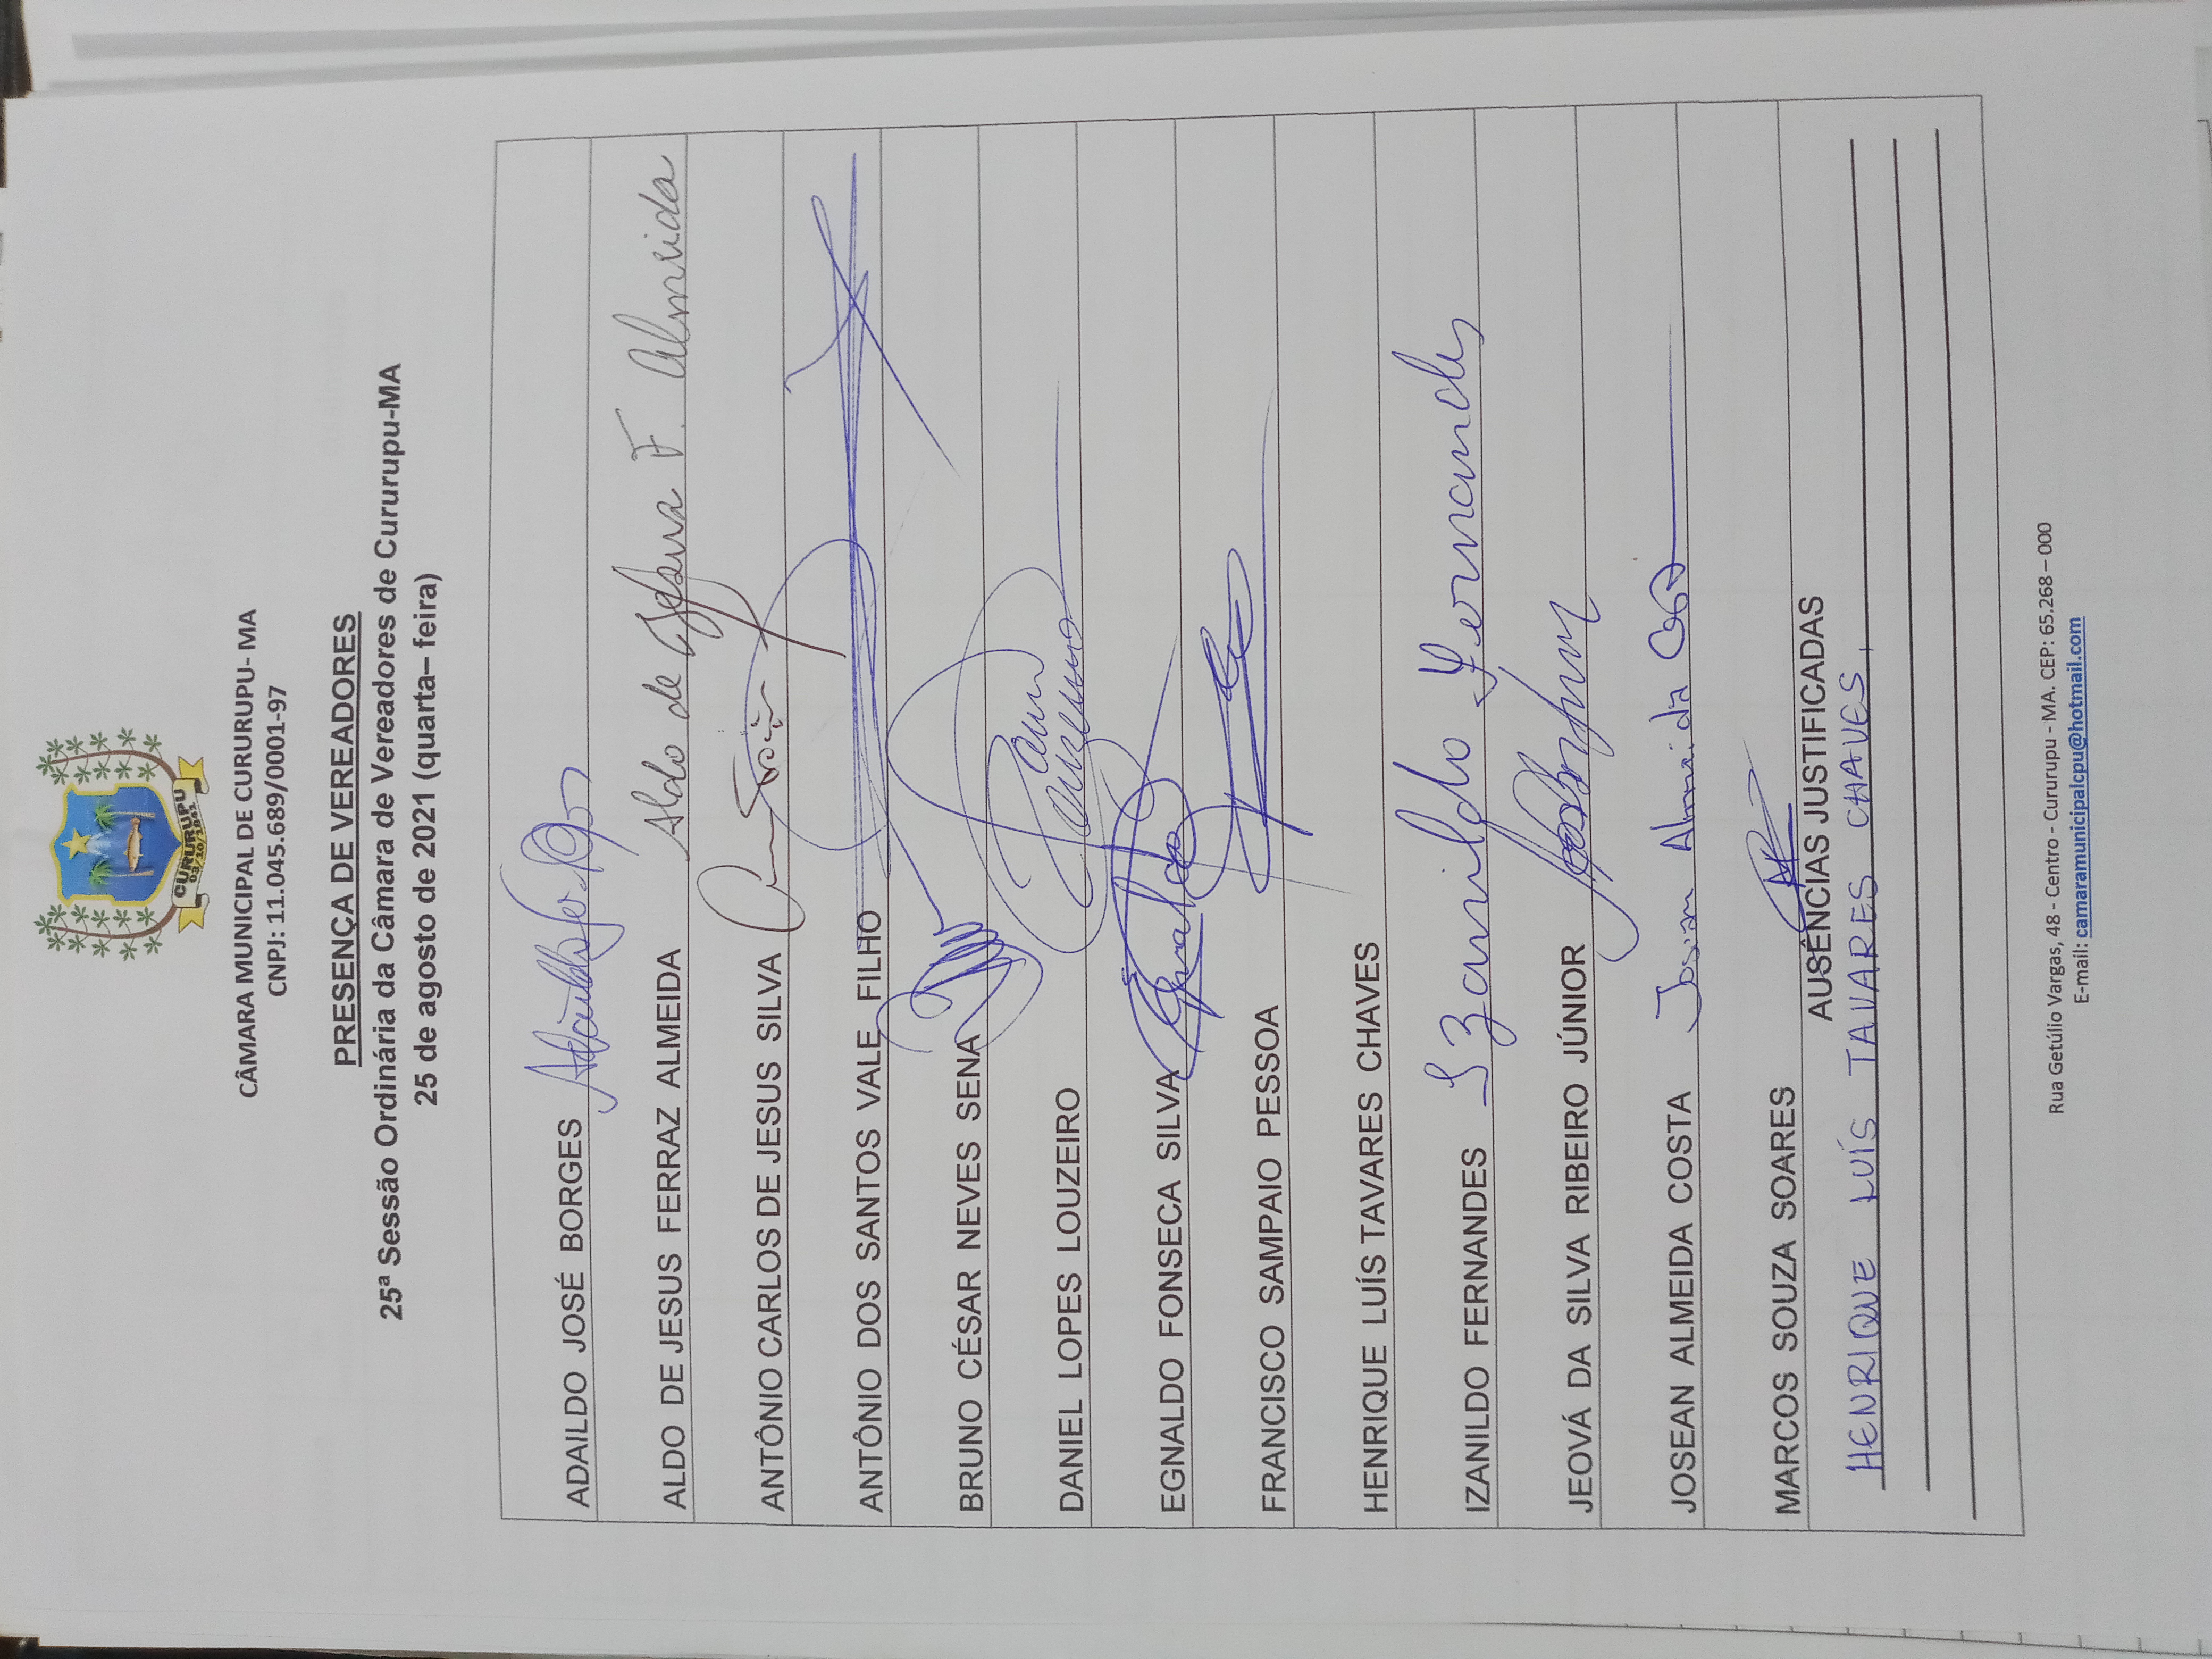 CURURUPU
03/10/1841
CÂMARA MUNICIPAL DE CURURUPU- MA
CNPJ: 11.045.689/0001-97
PRESENÇA DE VEREADORES
25ª Sessão Ordinária da Câmara de Vereadores de Cururupu-MA
25 de agosto de 2021 (quarta– feira)
ADAILDO JOSÉ BORGES
ALDO DE JESUS FERRAZ ALMEIDA Aldo de Jesus F. Almeida
ANTÔNIO CARLOS DE JESUS SILVA
ANTÔNIO DOS SANTOS VALE FILHO
BRUNO CÉSAR NEVES SENA
DANIEL LOPES LOUZEIRO
EGNALDO FONSECA SILVA
FRANCISCO SAMPAIO PESSOA
HENRIQUE LUÍS TAVARES CHAVES
IZANILDO FERNANDES Izanildo Fernandes
JEOVÁ DA SILVA RIBEIRO JÚNIOR
JOSEAN ALMEIDA COSTA Josean Almeida Costa
MARCOS SOUZA SOARES
AUSÊNCIAS JUSTIFICADAS
HENRIQUE LUÍS TAVARES CHAVES,
Rua Getúlio Vargas, 48 - Centro - Cururupu - MA. CEP: 65.268 – 000
E-mail: camaramunicipalcpu@hotmail.com